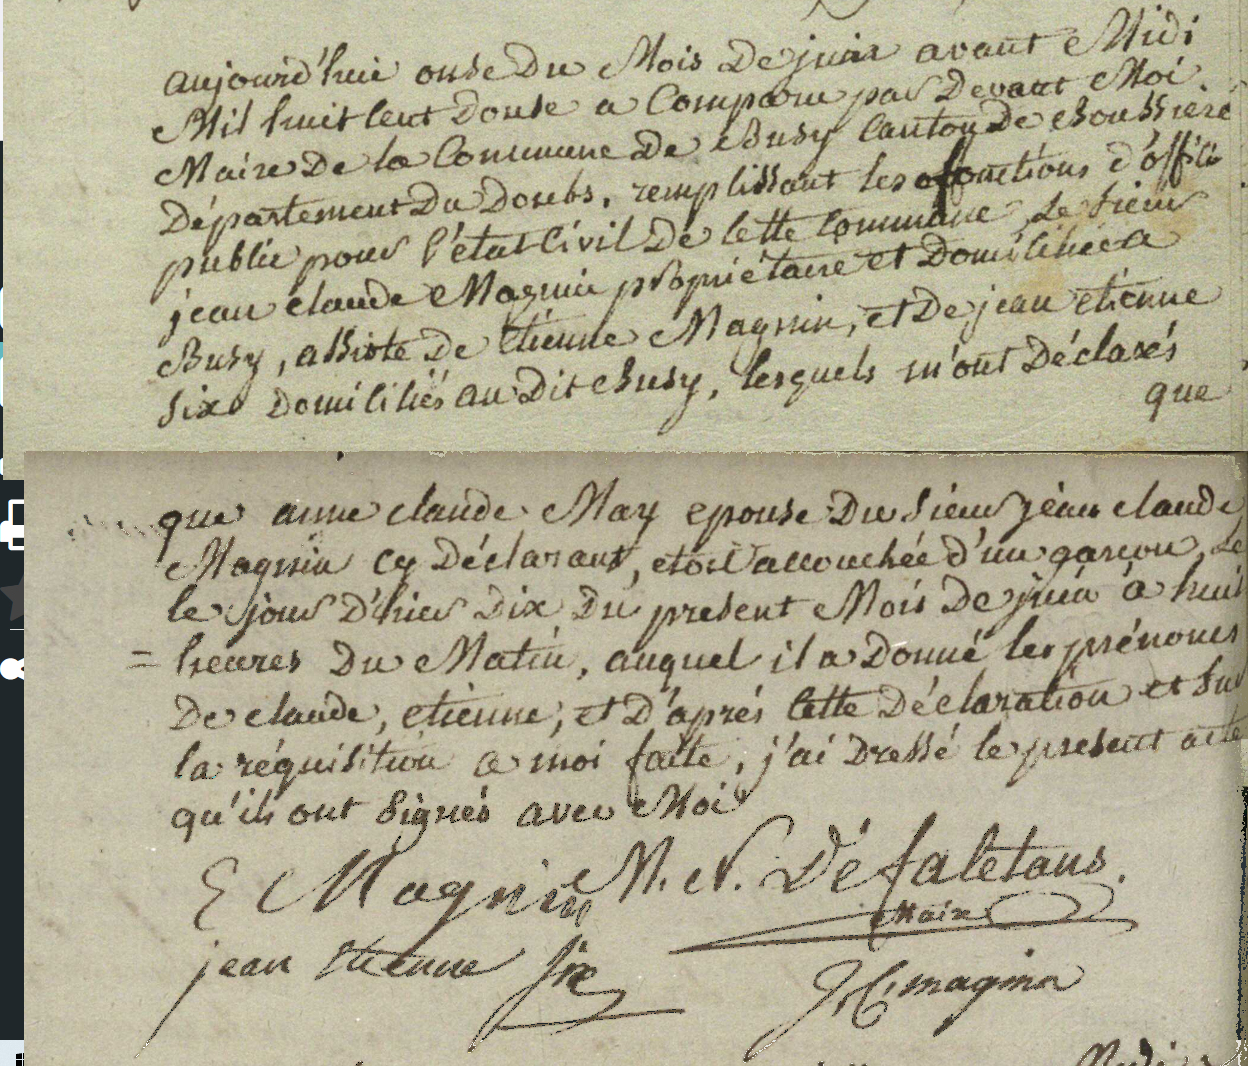 aujourd'hui onse Du Mois De juin avant Midi
Mil huit cent Douse a Comparu par Devant Moi
Maire De la Commune De Busy Canton De Boussiere
Département Du Doubs, remplissant les fonctions d'offici
public pour l'état Civil De Cette Commune, Le Sieur
jean claude Magnin propriétaire et Domicilié a
Busy, assisté De Etienne Magnin, et De jean etienne
Six Domiciliés au Dit Busy, lesquels m'ont Déclarés
que
que anne claude May epouse Du Sieur jean claude
Magnin cy Déclarant, etoit accouchée d'un garçon, Le
le jour D'hier Dix Du present Mois De juin a huit
= heures Du Matin, auquel il a Donné les prénoms
De claude, etienne, et D'aprés Cette Déclaration et Sur
la réquisition a moi faite, j'ai Dressé le present acte
qu'ils ont Signés avec Moi
E Magnin M. N. Défaletans.
Maire
jean Etienne Six
JC magnin